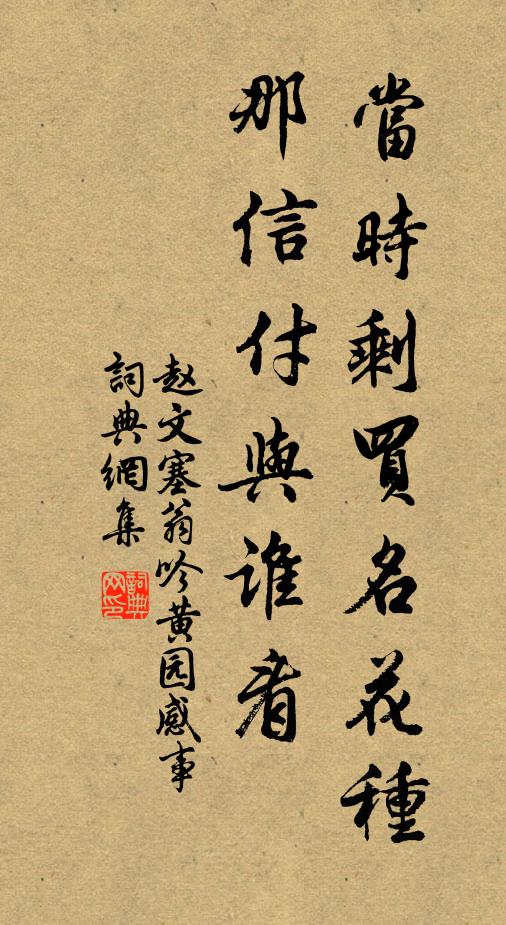 當時剩買名花種
那信付與誰看
赵文塞翁吟黄园感事
詞典網集
詞典网印